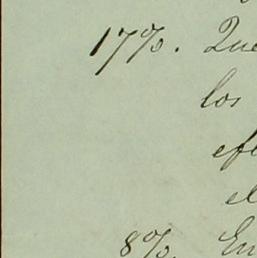 17%. Que
los
efe
el
8%. En